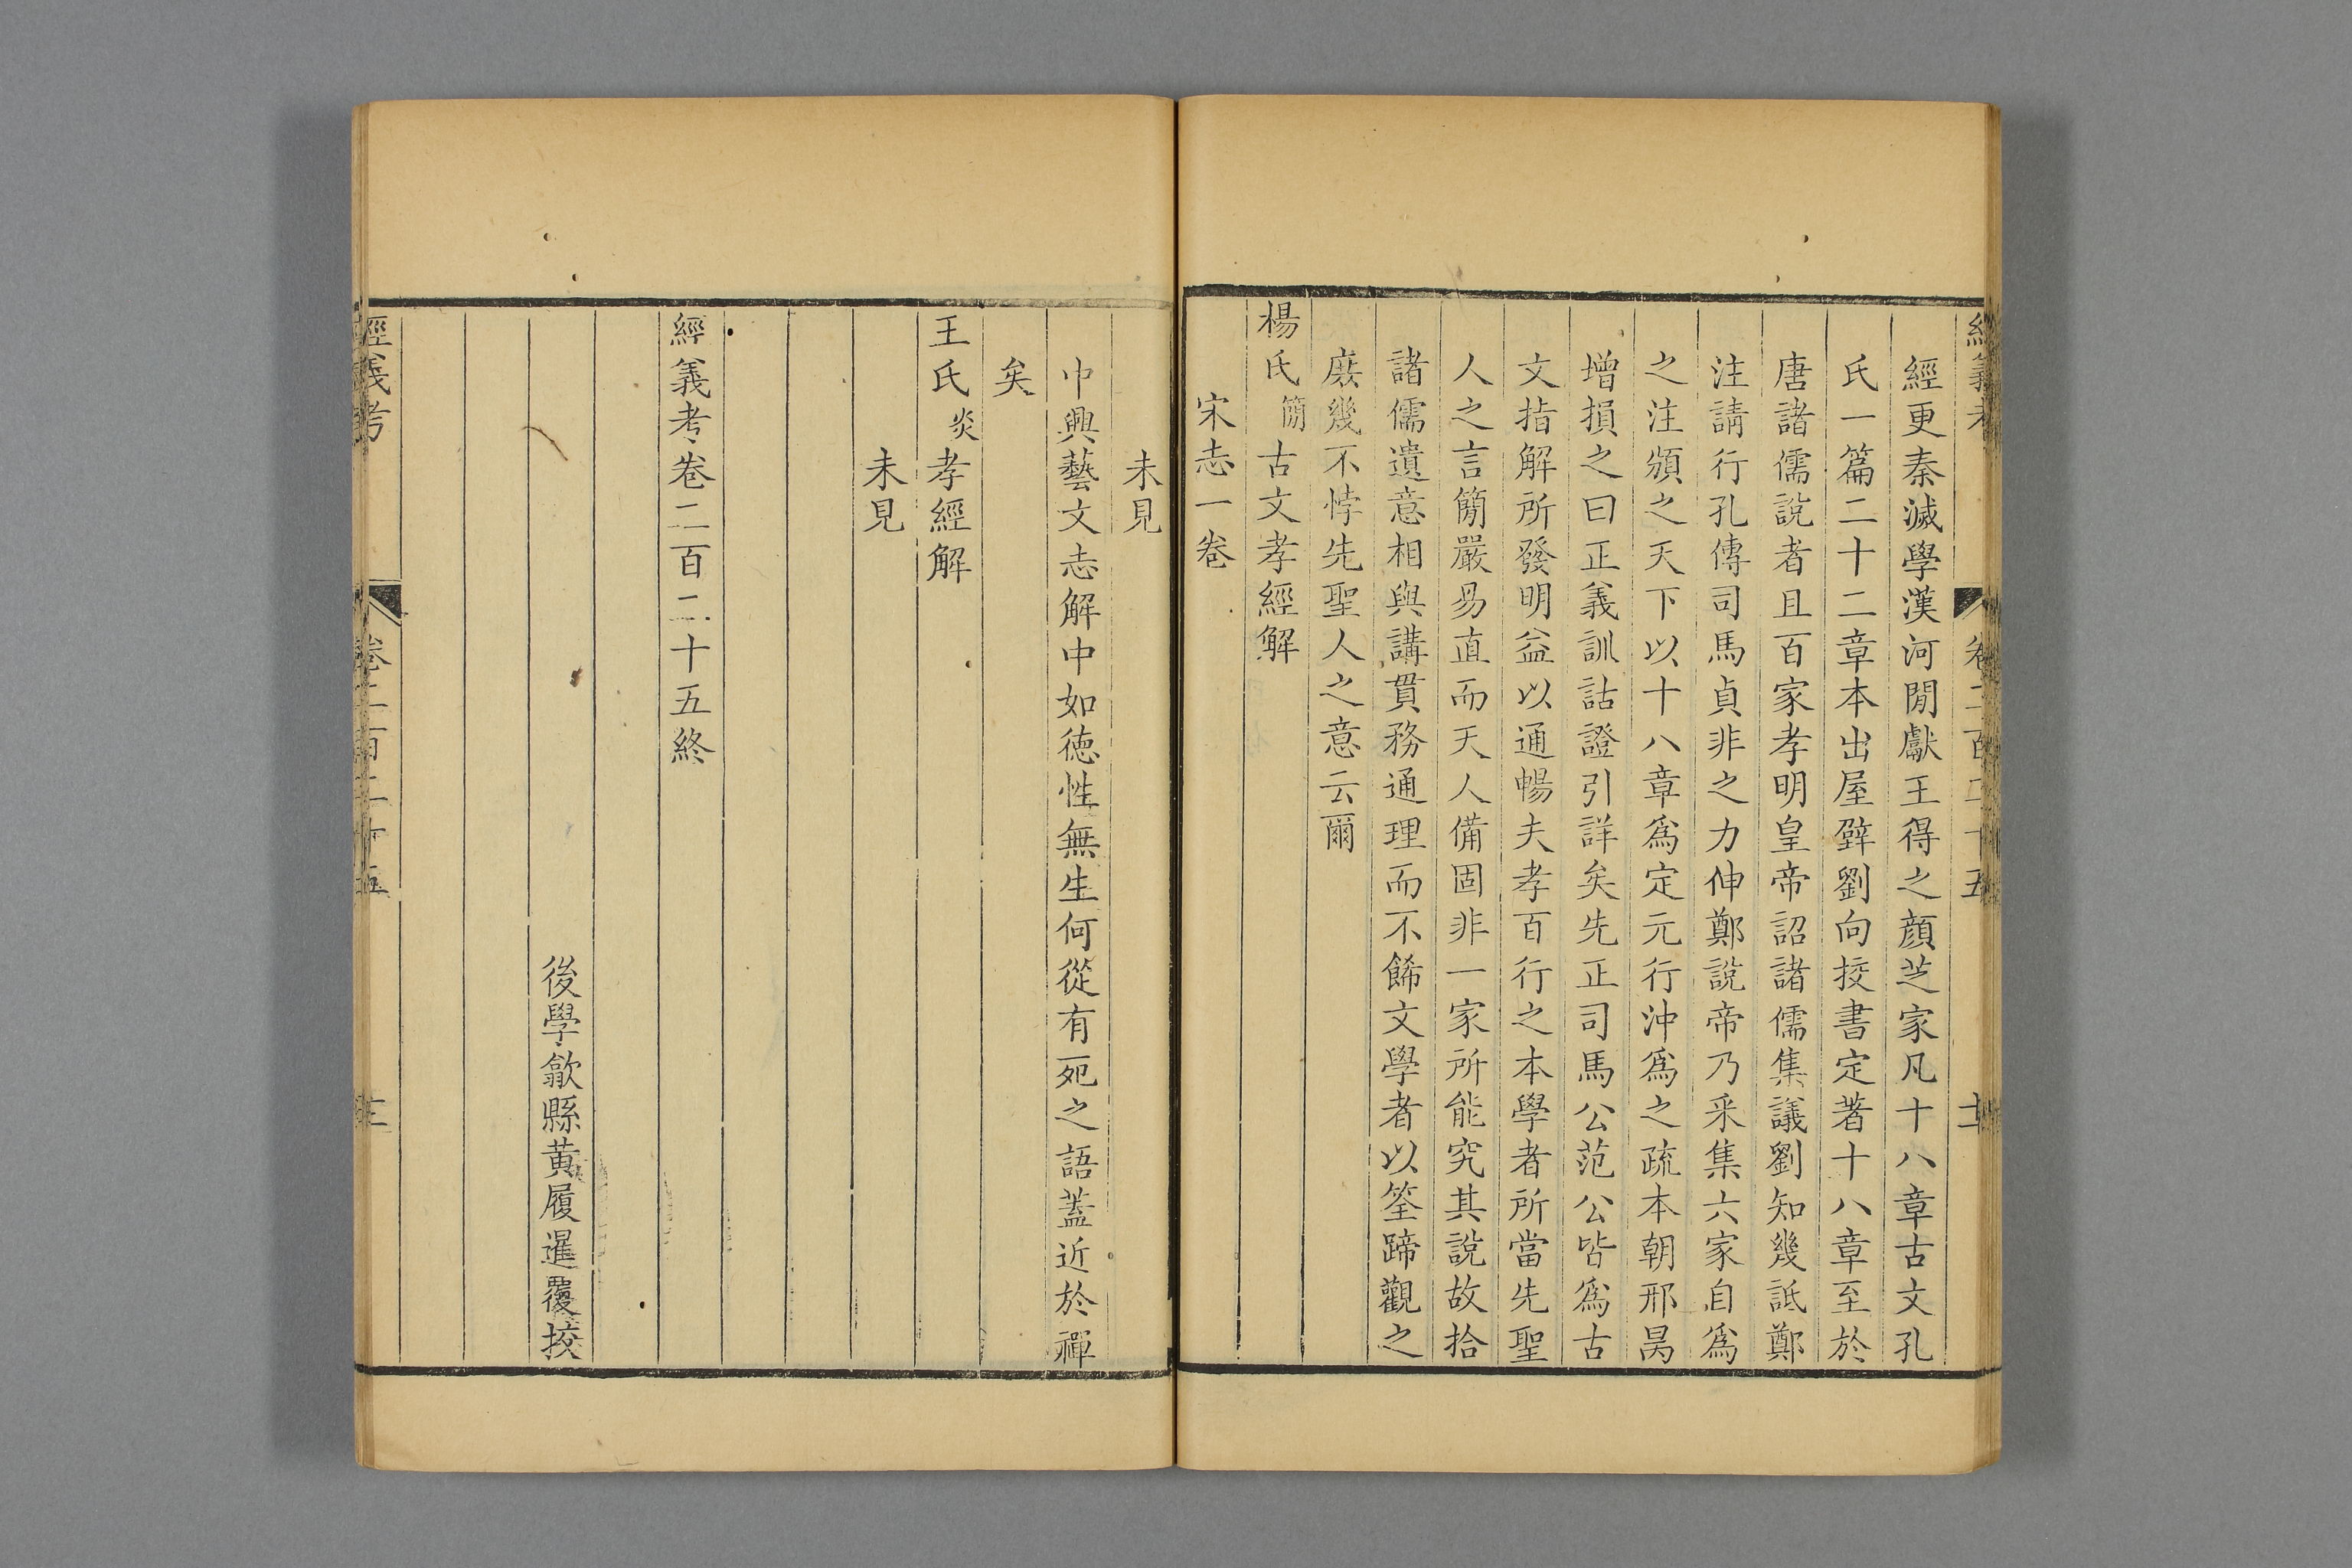 經更秦滅學漢河閒獻王得之顏芝家凡十八章古文孔
氏一篇二十二章本出屋壁劉向挍書定著十八章至於
唐諸儒說者且百家孝明皇帝詔諸儒集議劉知幾詆鄭
注請行孔傳司馬貞非之力伸鄭說帝乃采集六家自爲
之注頒之天下以十八章爲定元行沖爲之疏本朝邢昺
增損之曰正義訓詁證引詳矣先正司馬公范公皆爲古
文指解所發明益以通暢夫孝百行之本學者所當先聖
人之言簡嚴易直而天人備固非一家所能究其說故拾
諸儒遺意相與講貫務通理而不餙文學者以筌蹄觀之
庶幾不悖先聖人之意云爾
楊氏簡古文孝經解
宋志一卷
未見
中興藝文志解中如徳性無生何從有死之語葢近於禪
矣
王氏炎孝經解
未見
經義考卷二百二十五終
後學歙縣黃履暹覆挍
經義考 卷二百二十五